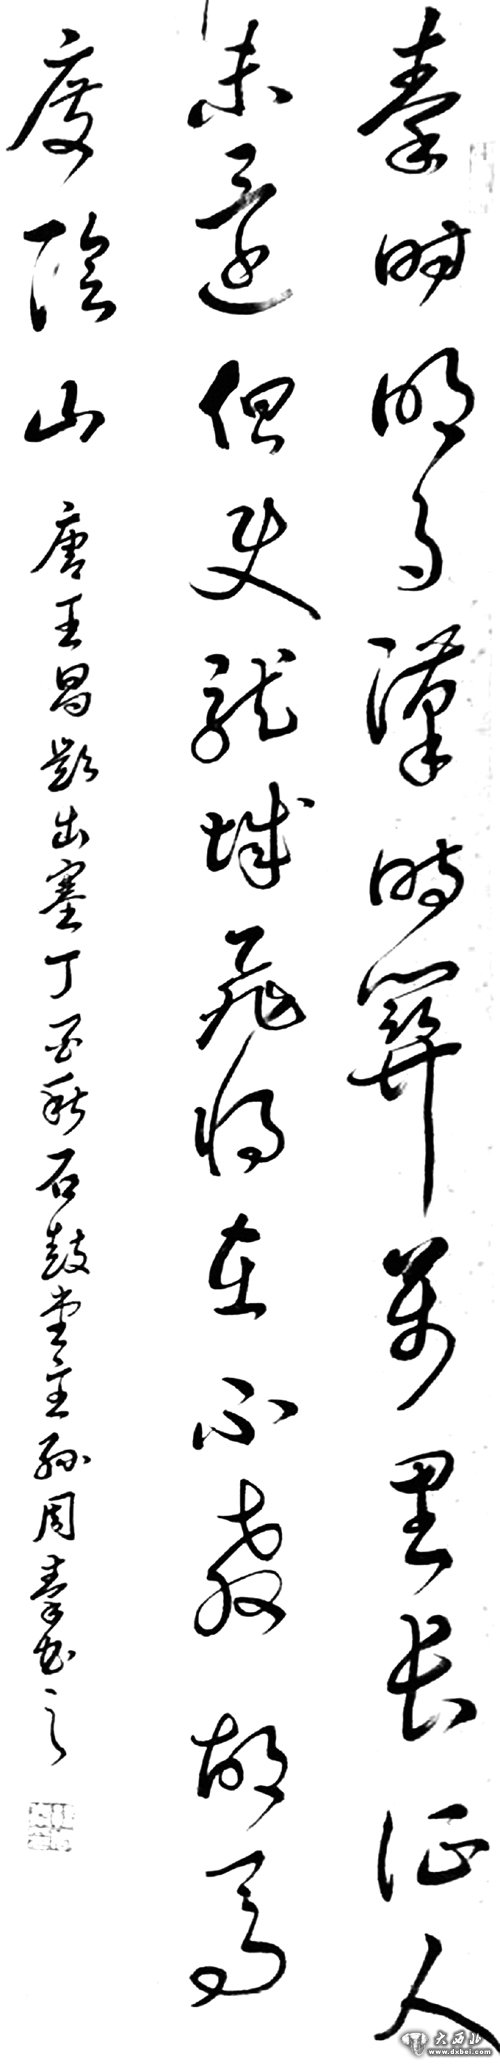 秦时明月汉时关万里长征人
未还但使龙城飞将在不教胡马
度阴山
唐王昌龄出塞丁酉秋石鼓堂主孙周秦书之
大西北
www.dxbei.com